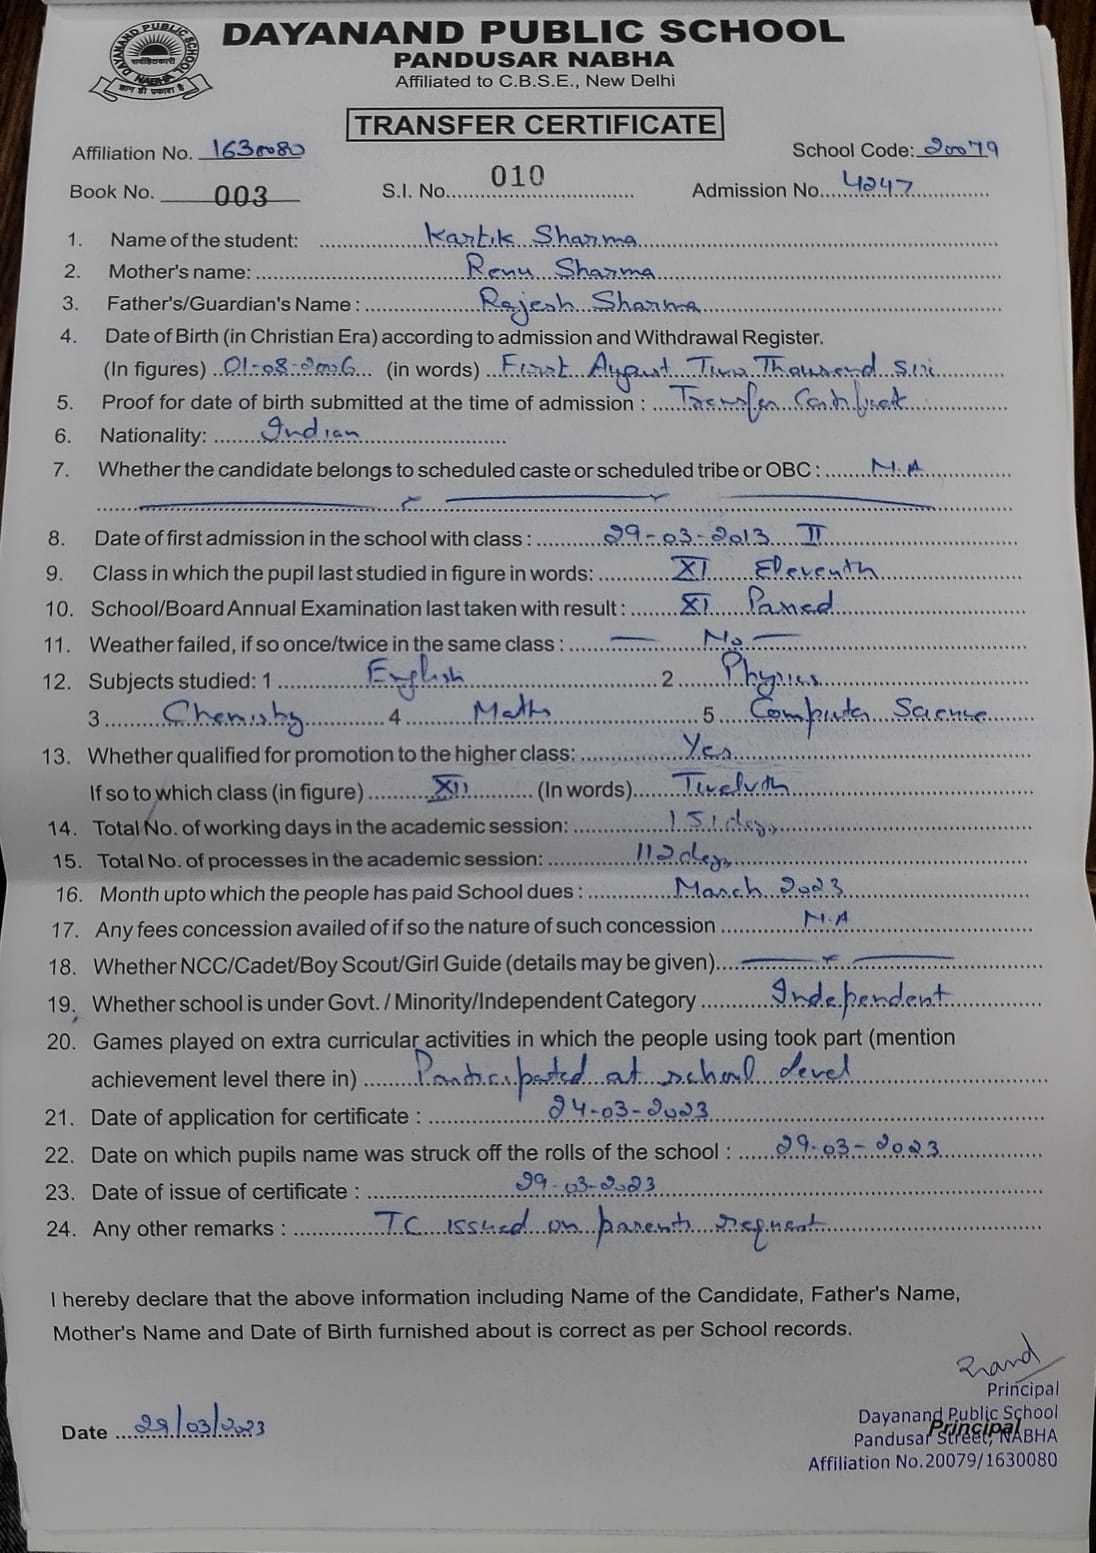 DAYANAND PUBLIC SCHOOL
PANDUSAR NABHA
Affiliated to C.B.S.E., New Delhi
DAYANAND PUBLIC SCHOOL
NABHA
TRANSFER CERTIFICATE
Affiliation No. 1630080 School Code: 20079
Book No. 003 S.I. No. 010 Admission No. 4247
1. Name of the student: Kartik Sharma
2. Mother's name: Renu Sharma
3. Father's/Guardian's Name : Rajesh Sharma
4. Date of Birth (in Christian Era) according to admission and Withdrawal Register.
(In figures) 01-08-2006 (in words) First August Two Thousand Six
5. Proof for date of birth submitted at the time of admission : Transfer Certificate
6. Nationality: Indian
7. Whether the candidate belongs to scheduled caste or scheduled tribe or OBC : N.A
8. Date of first admission in the school with class : 29-03-2013 II
9. Class in which the pupil last studied in figure in words: XI Eleventh
10. School/Board Annual Examination last taken with result : XI Passed
11. Weather failed, if so once/twice in the same class : — No —
12. Subjects studied: 1 English 2 Physics
3 Chemistry 4 Maths 5 Computer Science
13. Whether qualified for promotion to the higher class: Yes
If so to which class (in figure) XII (In words) Twelvth
14. Total No. of working days in the academic session: 151 days
15. Total No. of processes in the academic session: 112 days
16. Month upto which the people has paid School dues : March 2023
17. Any fees concession availed of if so the nature of such concession N.A
18. Whether NCC/Cadet/Boy Scout/Girl Guide (details may be given)
19. Whether school is under Govt. / Minority/Independent Category Independent
20. Games played on extra curricular activities in which the people using took part (mention
achievement level there in) Participated at school level
21. Date of application for certificate : 24-03-2023
22. Date on which pupils name was struck off the rolls of the school : 29-03-2023
23. Date of issue of certificate : 29-03-2023
24. Any other remarks : TC issued on parents request
I hereby declare that the above information including Name of the Candidate, Father's Name,
Mother's Name and Date of Birth furnished about is correct as per School records.
Principal
Dayanand Public School
Principal
Pandusar Street, NABHA
Affiliation No.20079/1630080
Date 29/03/2023